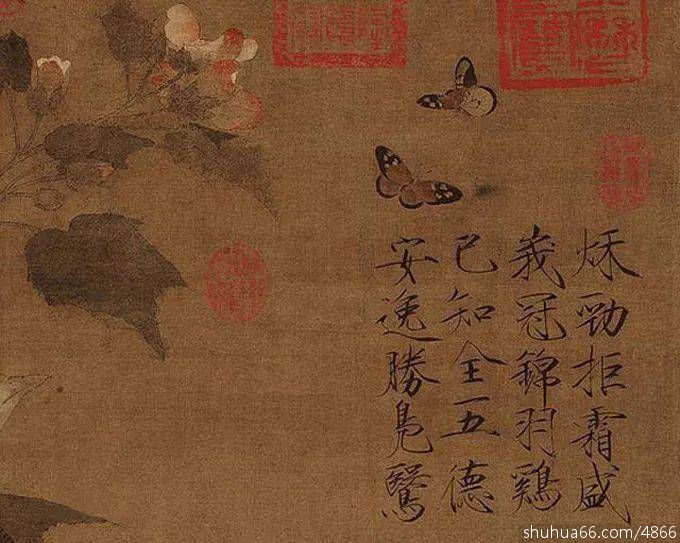 秌勁拒霜盛
義冠錦羽鷄
已知全五德
安逸勝鳧鷖
shuhua66.com/4866